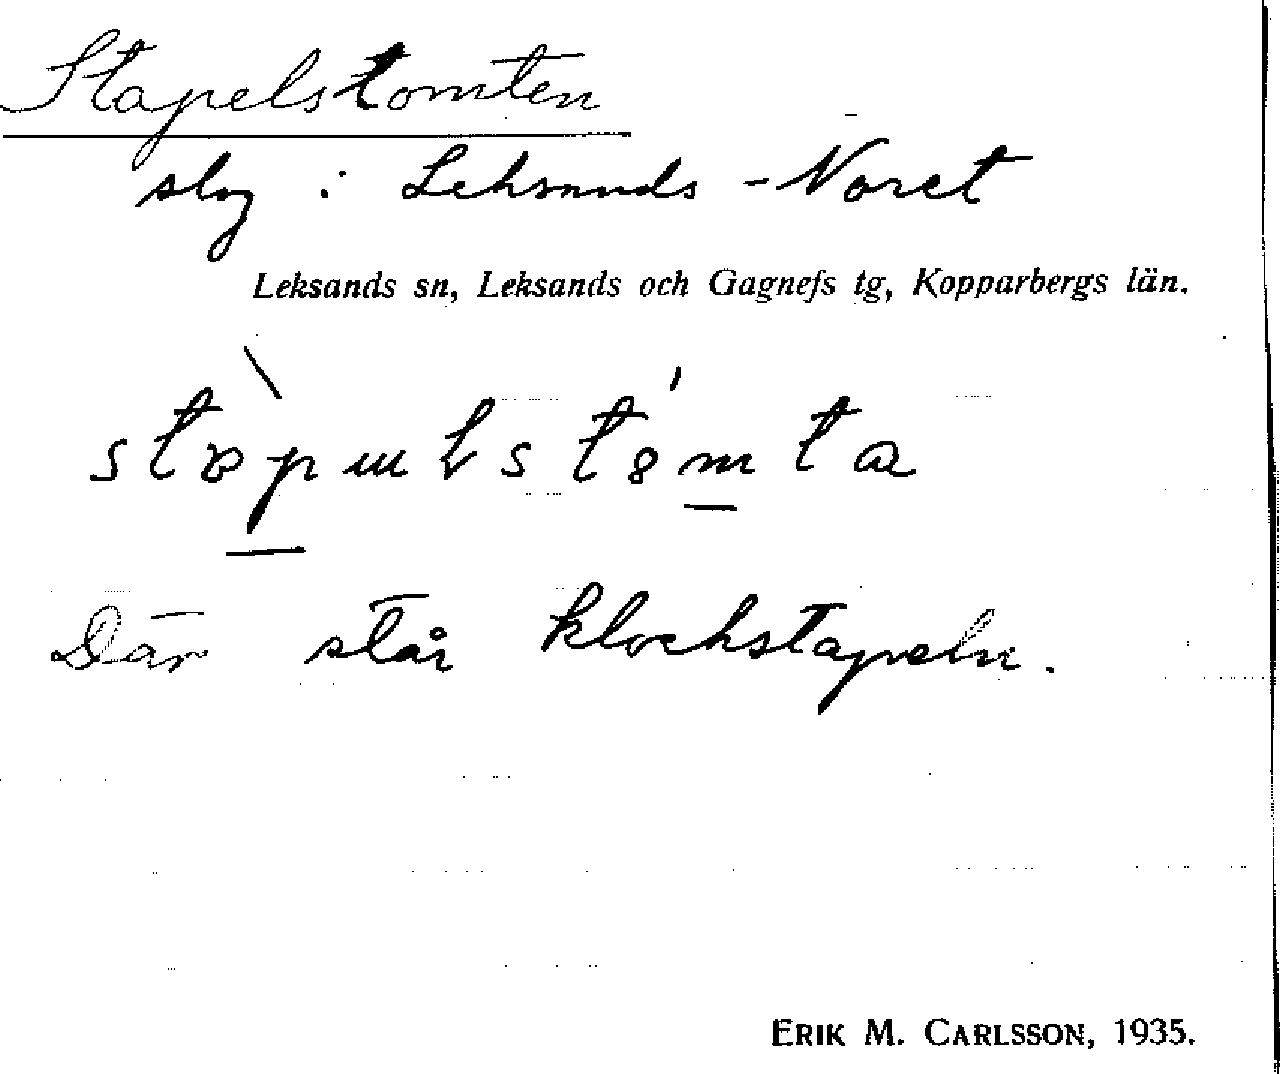 Stapelstomten
slog i Leksands-Noret
Leksands sn, Leksands och Gagnefs tg, Kopparbergs län.
Där står klockstapeln.
ERIK M. CARLSSON, 1935.